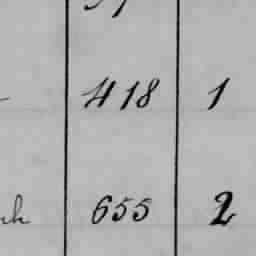 418 1
655 2